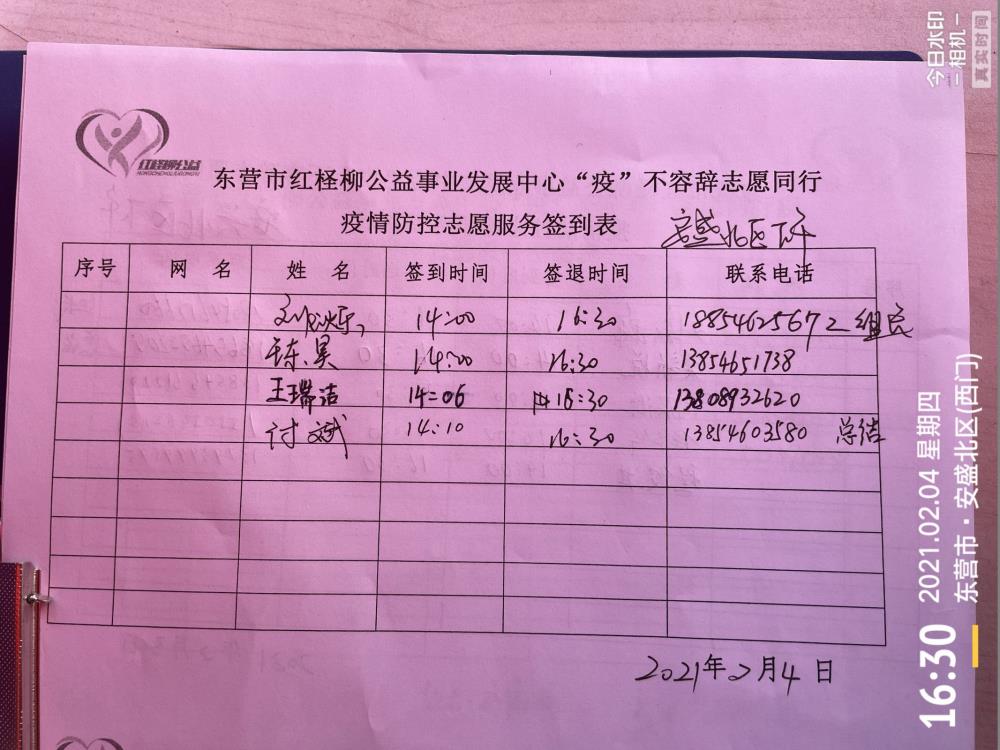 红柽柳公益
HONGCHENGLIUGONGYI
东营市红柽柳公益事业发展中心“疫”不容辞志愿同行
疫情防控志愿服务签到表 安盛北区下午
序号 网 名 姓 名 签到时间 签退时间 联系电话
14:00 16:30 18854625672 组长
陈昊 14:00 16:30 13854651738
王瑞洁 14:06 16:30 13808932620
14:10 16:30 13854603580 总结
2021年2月4日
今日水印
相机
真实时间
16:30 2021.02.04 星期四
东营市·安盛北区(西门)